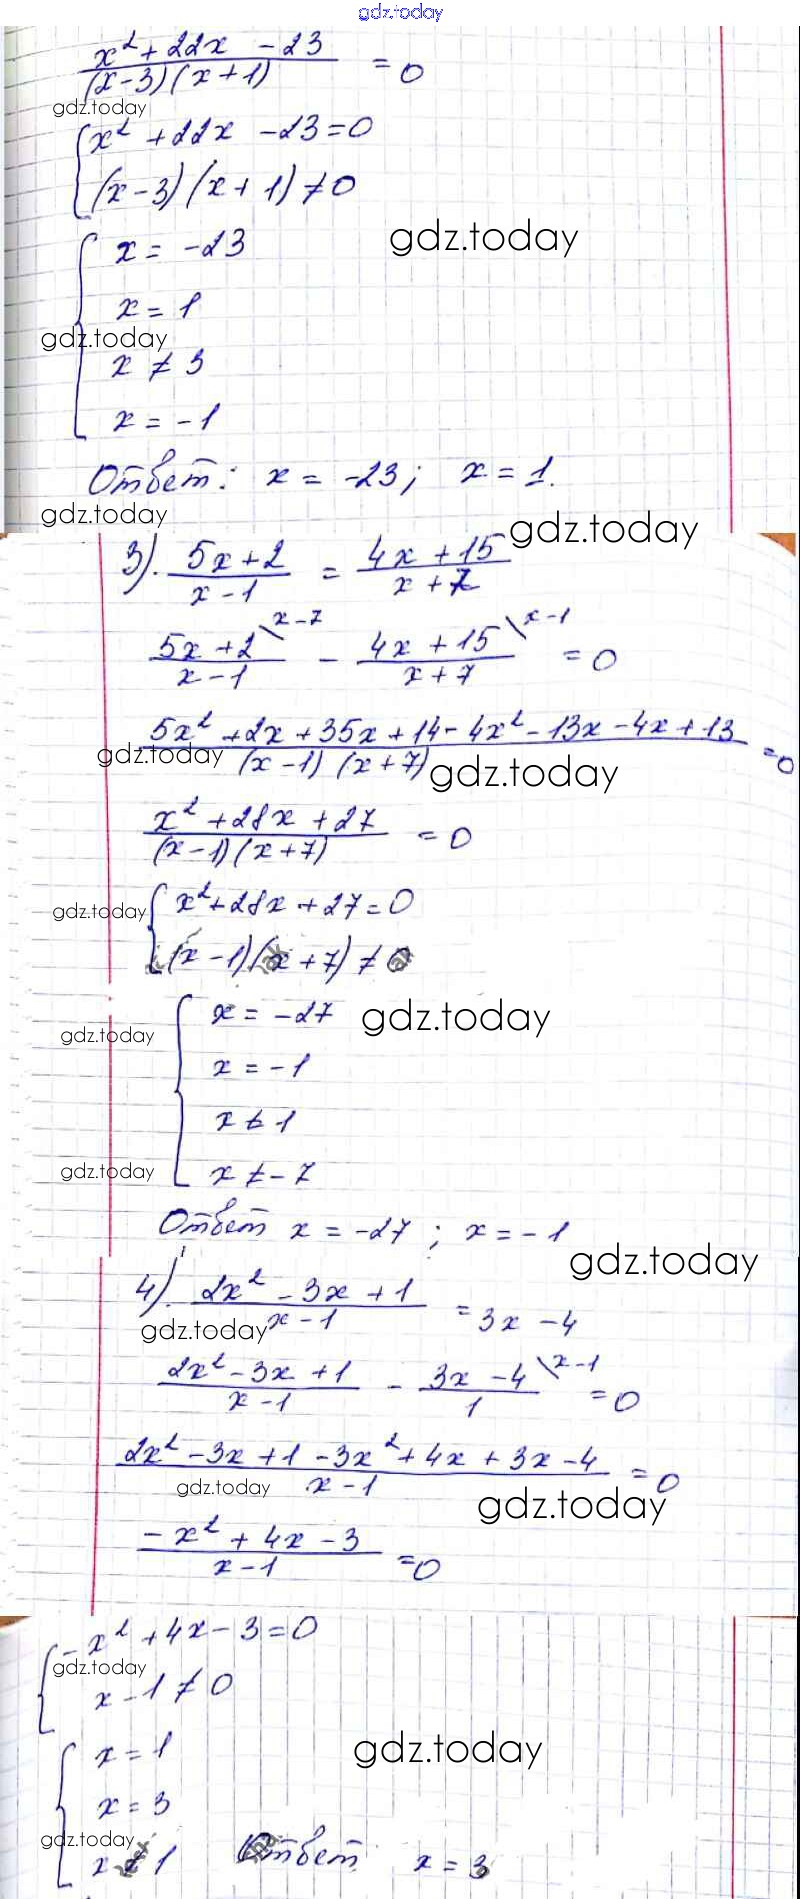 gdz.today
x² + 22x - 23 / (x - 3)(x + 1) = 0
gdz.today
x² + 22x - 23 = 0
(x - 3)(x + 1) ≠ 0
x = -23
gdz.today
x = 1
gdz.today
x ≠ 3
x = -1
Ответ: x = -23; x = 1.
gdz.today
gdz.today
3). 5x + 2 / x - 1 = 4x + 15 / x + 7
5x + 2 \ x - 7 / x - 1 - 4x + 15 \ x - 1 / x + 7 = 0
5x² + 2x + 35x + 14 - 4x² - 13x - 4x + 13 / (x - 1)(x + 7) = 0
gdz.today
gdz.today
x² + 28x + 27 / (x - 1)(x + 7) = 0
x² + 28x + 27 = 0
gdz.today
(x - 1)(x + 7) ≠ 0
x = -27
gdz.today
gdz.today
x = -1
x ≠ 1
gdz.today
x ≠ -7
Ответ x = -27; x = -1
gdz.today
4). 2x² - 3x + 1 / x - 1 = 3x - 4
gdz.today
2x² - 3x + 1 / x - 1 - 3x - 4 \ x - 1 / 1 = 0
2x² - 3x + 1 - 3x² + 4x + 3x - 4 / x - 1 = 0
gdz.today
gdz.today
-x² + 4x - 3 / x - 1 = 0
-x² + 4x - 3 = 0
gdz.today
x - 1 ≠ 0
x = 1
gdz.today
x = 3
gdz.today
x ≠ 1 Ответ x = 3